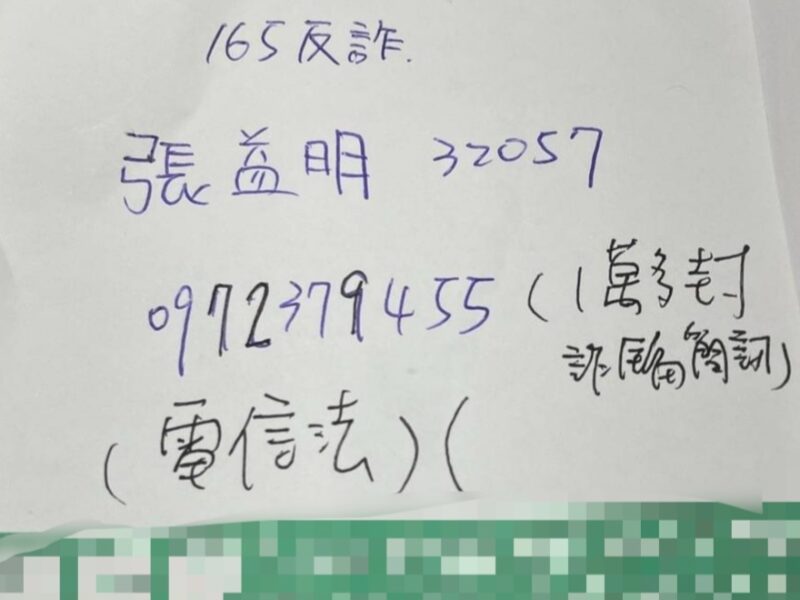 165反詐.
張益明 32057
0972379455 (1萬多封
詐騙簡訊)
(電信法) (